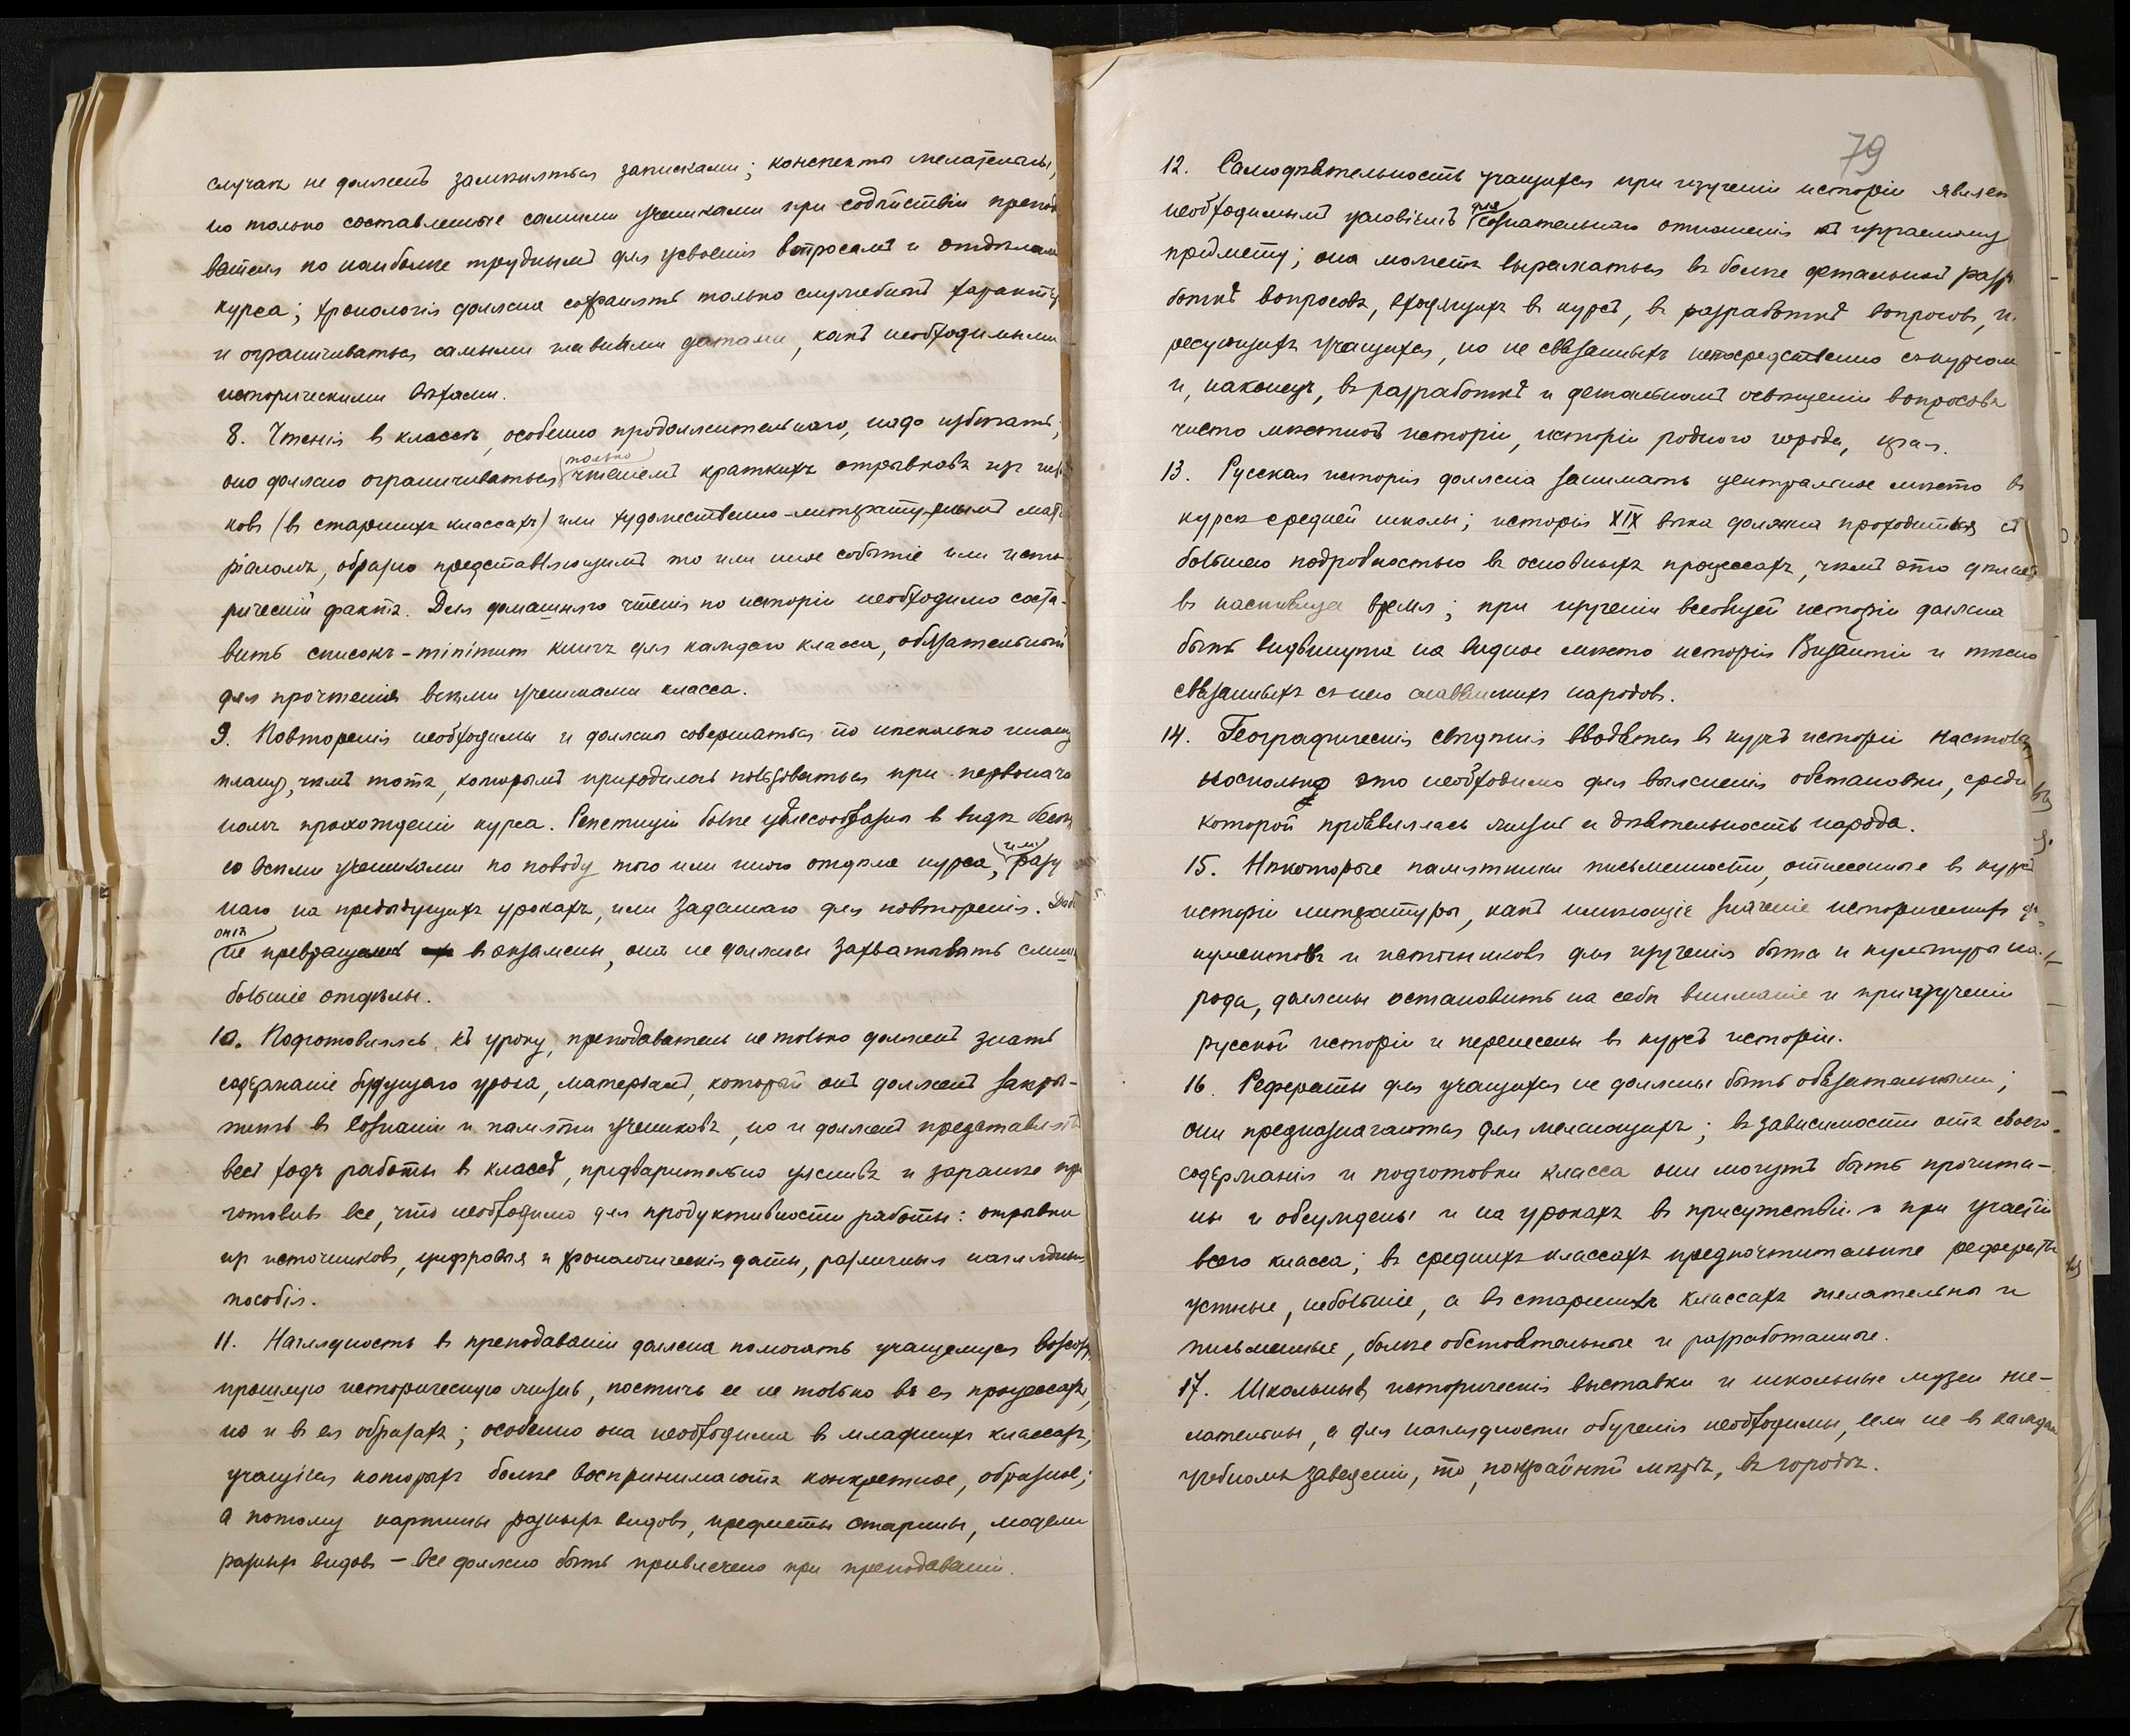 случаѣ не долженъ замѣняться записками; конспекты желательны,
но только составленные самими учениками при содѣйствіи препод
вателя по наиболѣе труднымъ для усвоенія вопросамъ и отдѣламъ
курса; хронологія должна сохранять только служебный характер
и ограничиваться самыми главными датами, какъ необходимыми
историческими вѣхами.
8. Чтенія въ классѣ, особенно продолжительнаго, надо избѣгать;
только
оно должно ограничиваться чтеніемъ краткихъ отрывковъ изъ
ковъ (въ старшихъ классахъ) или художественно-литературнымъ мате
ріаломъ, образно представляющимъ то или иное событіе или исто-
рическій фактъ. Для домашняго чтенія по исторіи необходимо соста-
вить списокъ-minimum книгъ для каждаго класса, обязательный
для прочтенія всѣми учениками класса.
9. Повторенія необходимы и должны совершаться по нѣсколько иному
плану, чѣмъ тотъ, которымъ приходилось пользоваться при первонача
номъ прохожденіи курса. Репетиціи болѣе цѣлесообразны въ видѣ бесѣд
или
со всѣми учениками по поводу того или иного отдѣла курса, разу
наго на предыдущихъ урокахъ, или заданнаго для повторенія. Дабы
онѣ
не превращались въ экзамены, онѣ не должны захватывать слиш
большіе отдѣлы.
10. Подготовляясь къ уроку, преподаватель не только долженъ знать
содержаніе будущаго урока, матеріалъ, который онъ долженъ закрѣ-
пить въ сознаніи и памяти учениковъ, но и долженъ представлять
весь ходъ работы въ классѣ, предварительно уяснивъ и заранѣе при
готовивъ все, что необходимо для продуктивности работы: отрывки
изъ источниковъ, цифровыя и хронологическія даты, различныя наглядныя
пособія.
11. Наглядность въ преподаваніи должна помогать учащемуся возсозд
прошлую историческую жизнь, постичь ее не только въ ея процессахъ,
но и въ ея образахъ; особенно она необходима въ младшихъ классахъ,
учащіеся которыхъ болѣе воспринимаютъ конкретное, образное;
а потому картины разныхъ видовъ, предметы старины, модели
разныхъ видовъ – все должно быть привлечено при преподаваніи.
79
12. Самодѣятельность учащихся при изученіи исторіи являет
для
необходимымъ условіемъ сознательнаго отношенія къ изучаемому
предмету; она можетъ выражаться въ болѣе детальной разр
боткѣ вопросовъ, входящихъ въ курсъ, въ разработкѣ вопросовъ, и
ресующихъ учащихся, но не связанныхъ непосредственно съ курсом
и, наконецъ, въ разработкѣ и детальномъ освѣщеніи вопросовъ
чисто мѣстной исторіи, исторіи родного города, края.
13. Русская исторія должна занимать центральное мѣсто въ
курсѣ средней школы; исторія XIX вѣка должна проходиться съ
большею подробностью въ основныхъ процессахъ, чѣмъ это дѣлает
въ настоящее время; при изученіи всеобщей исторіи должна
быть выдвинута на видное мѣсто исторія Византіи и тѣсно
связанныхъ съ нею славянскихъ народовъ.
14. Географическія свѣдѣнія вводятся въ курсъ исторіи настоль
насколько это необходимо для выясненія обстановки, среди
которой проявлялась жизнь и дѣятельность народа.
15. Нѣкоторые памятники письменности, отнесенные въ курсъ
исторіи литературы, какъ имѣющіе значеніе историческихъ до-
кументовъ и источниковъ для изученія быта и культуры на-
рода, должны остановить на себѣ вниманіе и при изученіи
русской исторіи и перенесены въ курсъ исторіи.
16. Рефераты для учащихся не должны быть обязательными;
они предназначаются для желающихъ; въ зависимости отъ своего
содержанія и подготовки класса они могутъ быть прочита-
ны и обсуждены и на урокахъ въ присутствіи и при участіи
всего класса; въ среднихъ классахъ предпочтительнѣе рефераты
устные, небольшіе, а въ старшихъ классахъ желательны и
письменные, болѣе обстоятельные и разработанные.
17. Школьныя историческія выставки и школьные музеи же-
лательны, а для наглядности обученія необходимы, если не въ каждом
учебномъ заведеніи, то, по крайней мѣрѣ, въ городѣ.